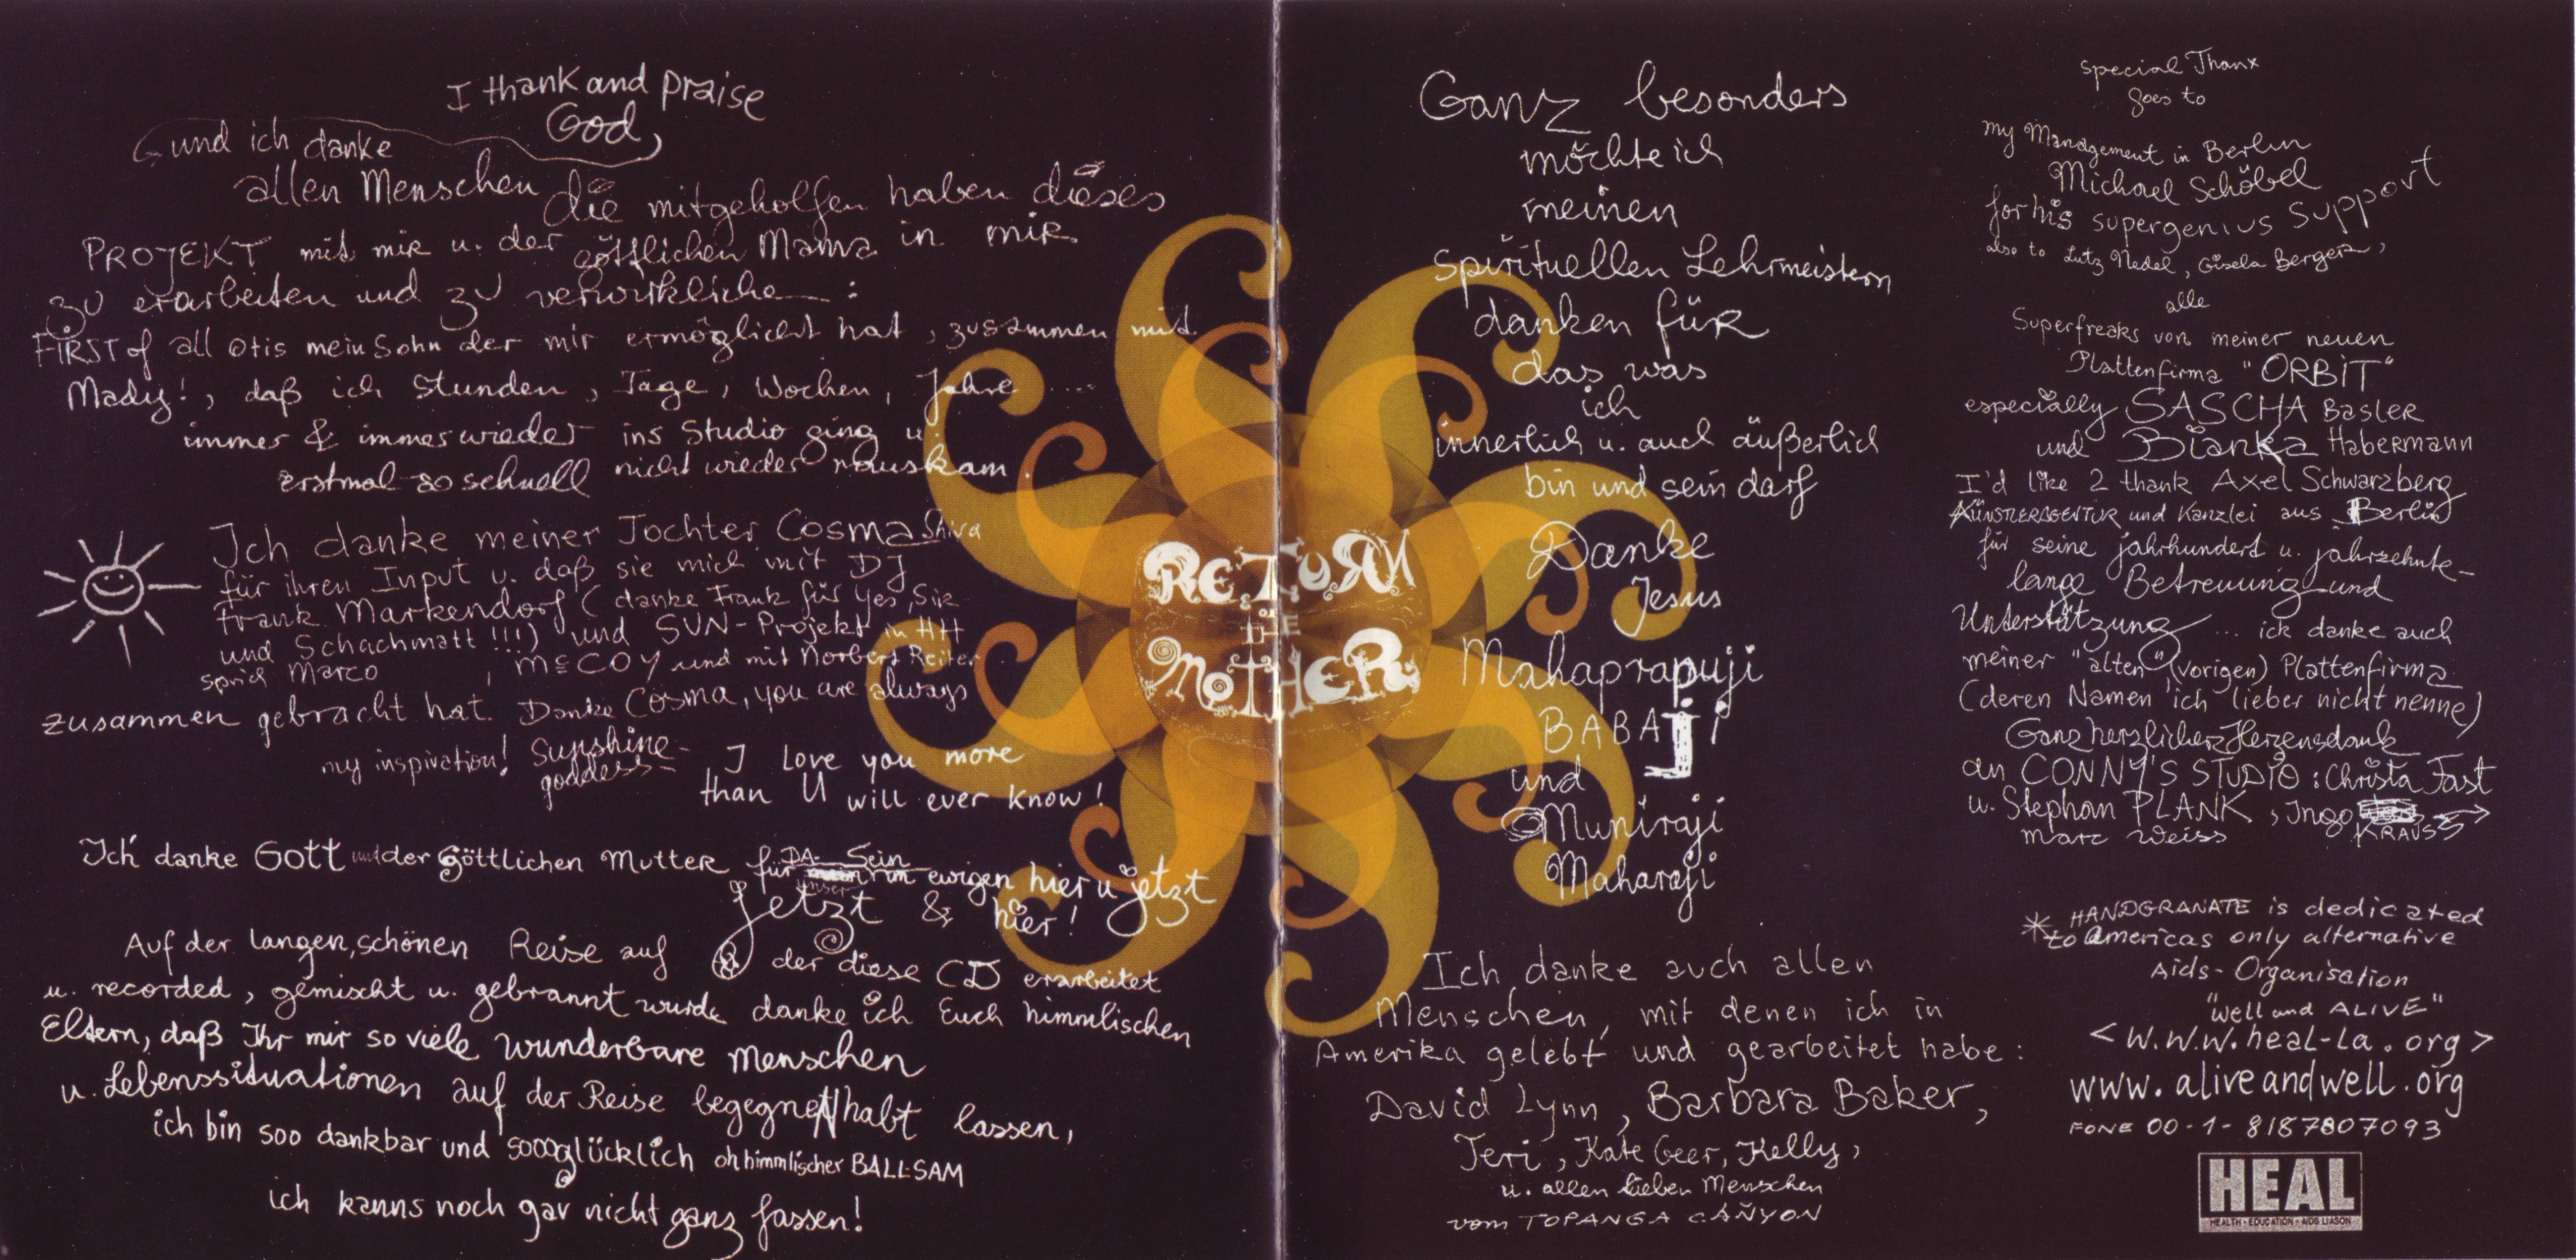 I thank and praise
God,
und ich danke
allen Menschen die mitgeholfen haben dieses
PROJEKT mit mir u. der göttlichen Mama in mir
zu erarbeiten und zu verwirkliche :
FIRST of all Otis mein Sohn der mir ermöglicht hat, zusammen mit
Mady!, daß ich Stunden, Tage, Wochen, Jahre ....
immer & immer wieder ins Studio ging u.
erstmal so schnell nicht wieder rauskam.
Ich danke meiner Tochter Cosma Shiva
für ihren Input u. daß sie mich mit DJ
Frank Markendorf (danke Frank für Yes, Sir
und Schachmatt!!!) und SUN-Projekt in HH
sprich Marco , McCOY und mit Norbert Reiter
zusammen gebracht hat. Danke Cosma, you are always
my inspiration! Sunshine-
goddess- I Love you more
than U will ever know!
Ich danke Gott und der göttlichen Mutter für DA-Sein im ewigen hier u jetzt
unser
jetzt & hier!
Auf der langen, schönen Reise auf der diese CD erarbeitet
u. recorded, gemischt u. gebrannt wurde danke ich Euch himmlischen
Eltern, daß Ihr mir so viele wunderbare Menschen
u. Lebenssituationen auf der Reise begegnet habt lassen,
ich bin soo dankbar und soooglücklich oh himmlischer BALLSAM
ich kanns noch gar nicht ganz fassen!
RETURN
OF
THE
MOTHER
Ganz besonders
möchte ich
meinen
spirituellen Lehrmeistern
danken für
das was
ich
innerlich u. auch äußerlich
bin und sein darf
Danke
Jesus
Mahaprapuji
BABAJI
und
Muniraji
Maharaji
Ich danke auch allen
Menschen, mit denen ich in
Amerika gelebt und gearbeitet habe:
David Lynn, Barbara Baker,
Teri, Kate Geer, Kelly,
u. allen lieben Menschen
vom TOPANGA CAÑYON
special Thanx
goes to
my Management in Berlin
Michael Schöbel
for his supergenius support
also to Lutz Nedel, Gisela Berger,
alle
Superfreaks von meiner neuen
Plattenfirma "ORBIT"
especially SASCHA Basler
und Bianka Habermann
I'd like 2 thank Axel Schwarzberg
KÜNSTLERAGENTUR und Kanzlei aus Berlin
für seine jahrhundert u. jahrzehnte-
lange Betreuung und
Unterstützung ... ich danke auch
meiner "alten" (vorigen) Plattenfirma
(deren Namen ich lieber nicht nenne)
Ganz herzlicher Herzensdank
an CONNY'S STUDIO: Christa Fast
u. Stephan PLANK, Ingo
KRAUSS
Marc Weiss
* HANDGRANATE is dedicated
to Americas only alternative
Aids-Organisation
"Well and ALIVE"
<W.W.W.heal-La.org>
www.aliveandwell.org
FONE 00-1-8187807093
HEAL
HEALTH • EDUCATION • AIDS LIASON